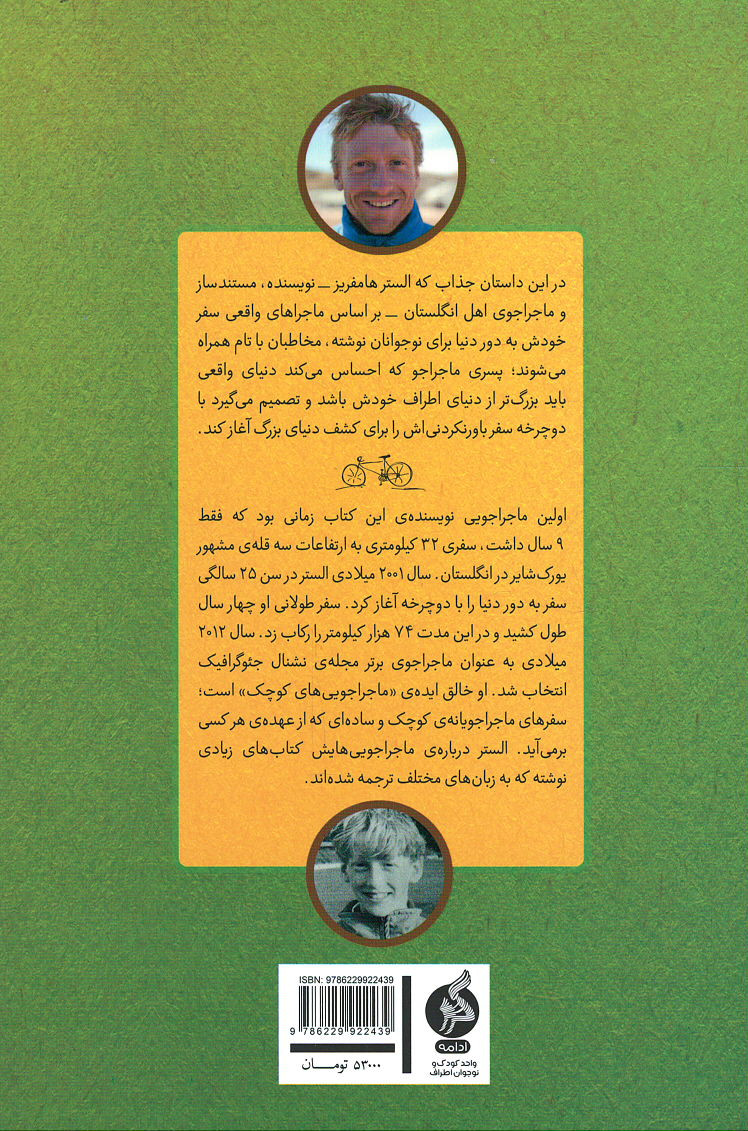 در این داستان جذاب که الستر هامفریز ــ نویسنده، مستندساز
و ماجراجوی اهل انگلستان ــ بر اساس ماجراهای واقعی سفر
خودش به دور دنیا برای نوجوانان نوشته، مخاطبان با تام همراه
می‌شوند؛ پسری ماجراجو که احساس می‌کند دنیای واقعی
باید بزرگ‌تر از دنیای اطراف خودش باشد و تصمیم می‌گیرد با
دوچرخه سفر باورنکردنی‌اش را برای کشف دنیای بزرگ آغاز کند.
اولین ماجراجویی نویسنده‌ی این کتاب زمانی بود که فقط
۹ سال داشت، سفری ۳۲ کیلومتری به ارتفاعات سه قله‌ی مشهور
یورک‌شایر در انگلستان. سال ۲۰۰۱ میلادی الستر در سن ۲۵ سالگی
سفر به دور دنیا را با دوچرخه آغاز کرد. سفر طولانی او چهار سال
طول کشید و در این مدت ۷۴ هزار کیلومتر را رکاب زد. سال ۲۰۱۲
میلادی به عنوان ماجراجوی برتر مجله‌ی نشنال جئوگرافیک
انتخاب شد. او خالق ایده‌ی «ماجراجویی‌های کوچک» است؛
سفرهای ماجراجویانه‌ی کوچک و ساده‌ای که از عهده‌ی هر کسی
برمی‌آید. الستر درباره‌ی ماجراجویی‌هایش کتاب‌های زیادی
نوشته که به زبان‌های مختلف ترجمه شده‌اند.
ISBN: 9786229922439
9 786229 922439
۵۳۰۰۰ تومـــان
ادامه
واحد کودک و
نوجوان اطراف